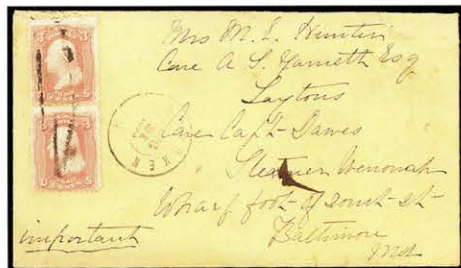 Mrs M. E. Hunter
Care A S. Garnett Esq
Laytons
Care Capt Dawes
Steamer Wenonah
Wharf foot of South st
Baltimore
Md
important
KEN
3 3
3 3